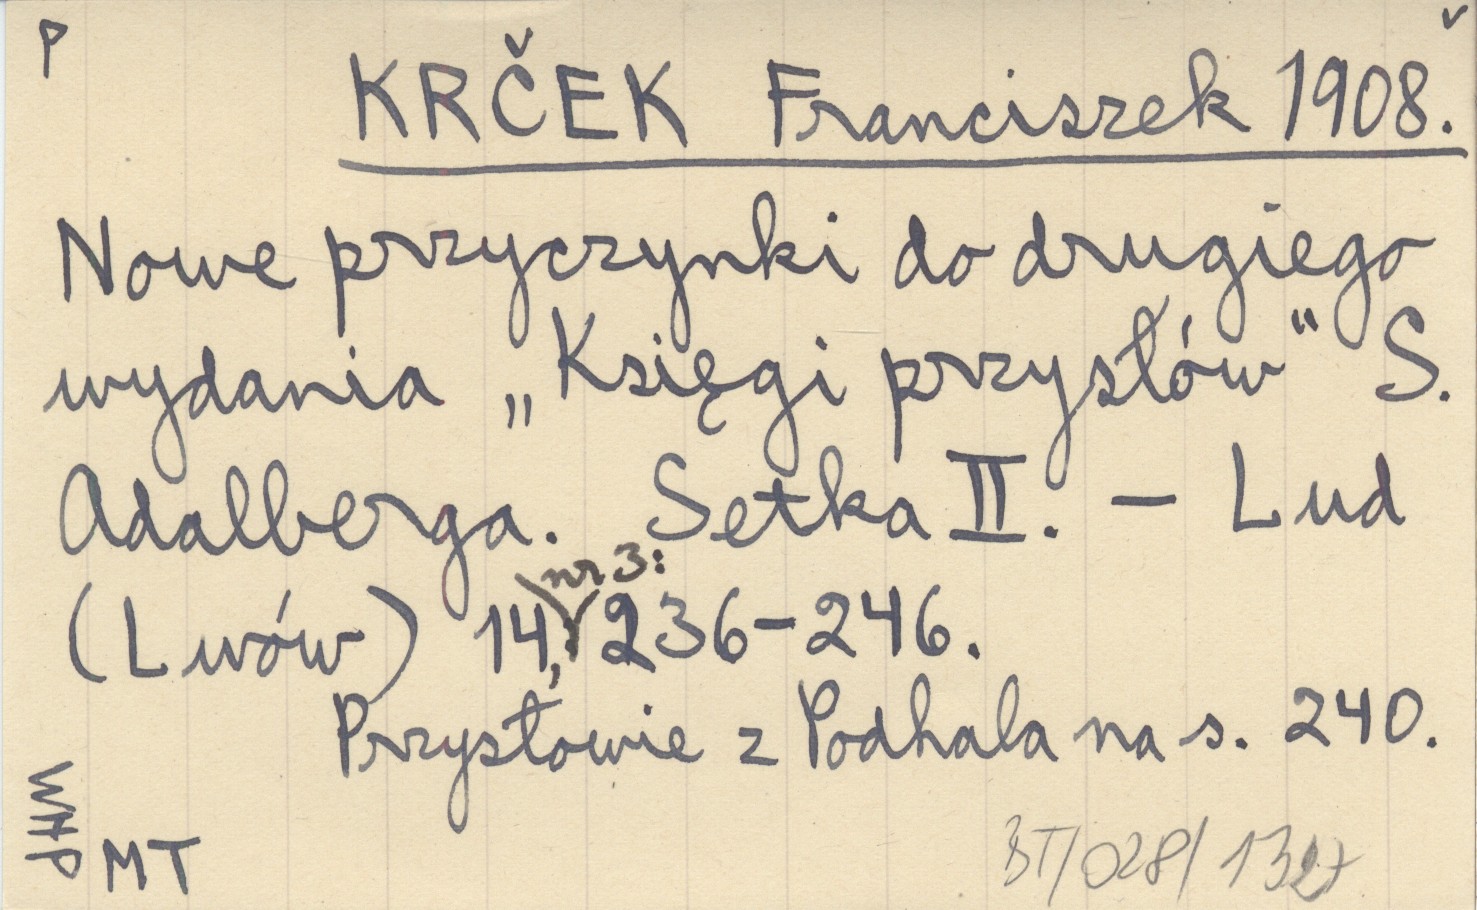 P
v
KRČEK Franciszek 1908.
Nowe przyczynki do drugiego
wydania „Księgi przysłów" S.
Adalberga. Setka II. — Lud
(Lwów) 14, nr 3: 236-246.
Przysłowie z Podhala na s. 240.
WHP
MT
BT/028/